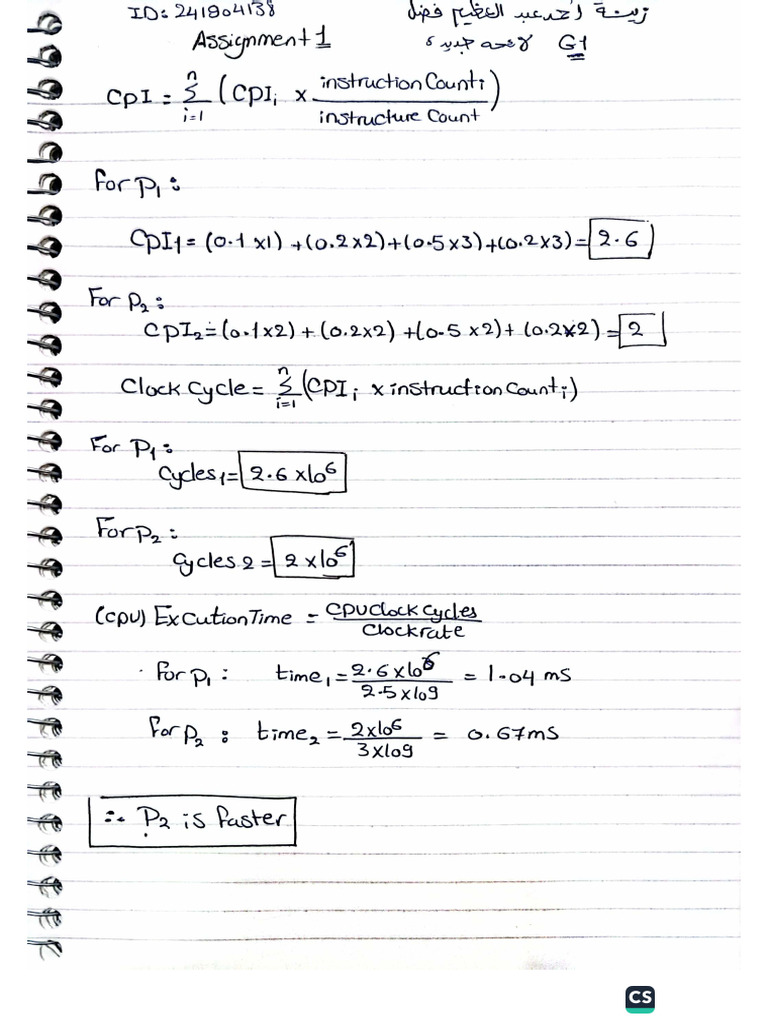 ID: 241904138
زينة أحمد عبد العظيم فضل
Assignment 1
لائحه جديده G1
CPI = n Σ i=1 (CPIi × instruction Counti / instructure Count)
For P1 :
CPI1 = (0.1 ×1) + (0.2×2)+(0.5×3)+(0.2×3)= 2.6
For P2 :
CPI2 = (0.1×2) + (0.2×2) +(0.5 ×2)+ (0.2×2) = 2
Clock Cycle = n Σ i=1 (CPIi × instruction Counti)
For P1 :
Cycles1= 2.6 ×10^6
For P2 :
Cycles 2 = 2 ×10^6
(CPU) Excution Time = CPU Clock Cycles / Clock rate
For P1 : time1 = 2.6 ×10^6 / 2.5 ×10^9 = 1.04 ms
For P2 : time2 = 2×10^6 / 3×10^9 = 0.67ms
∴ P2 is faster
CS